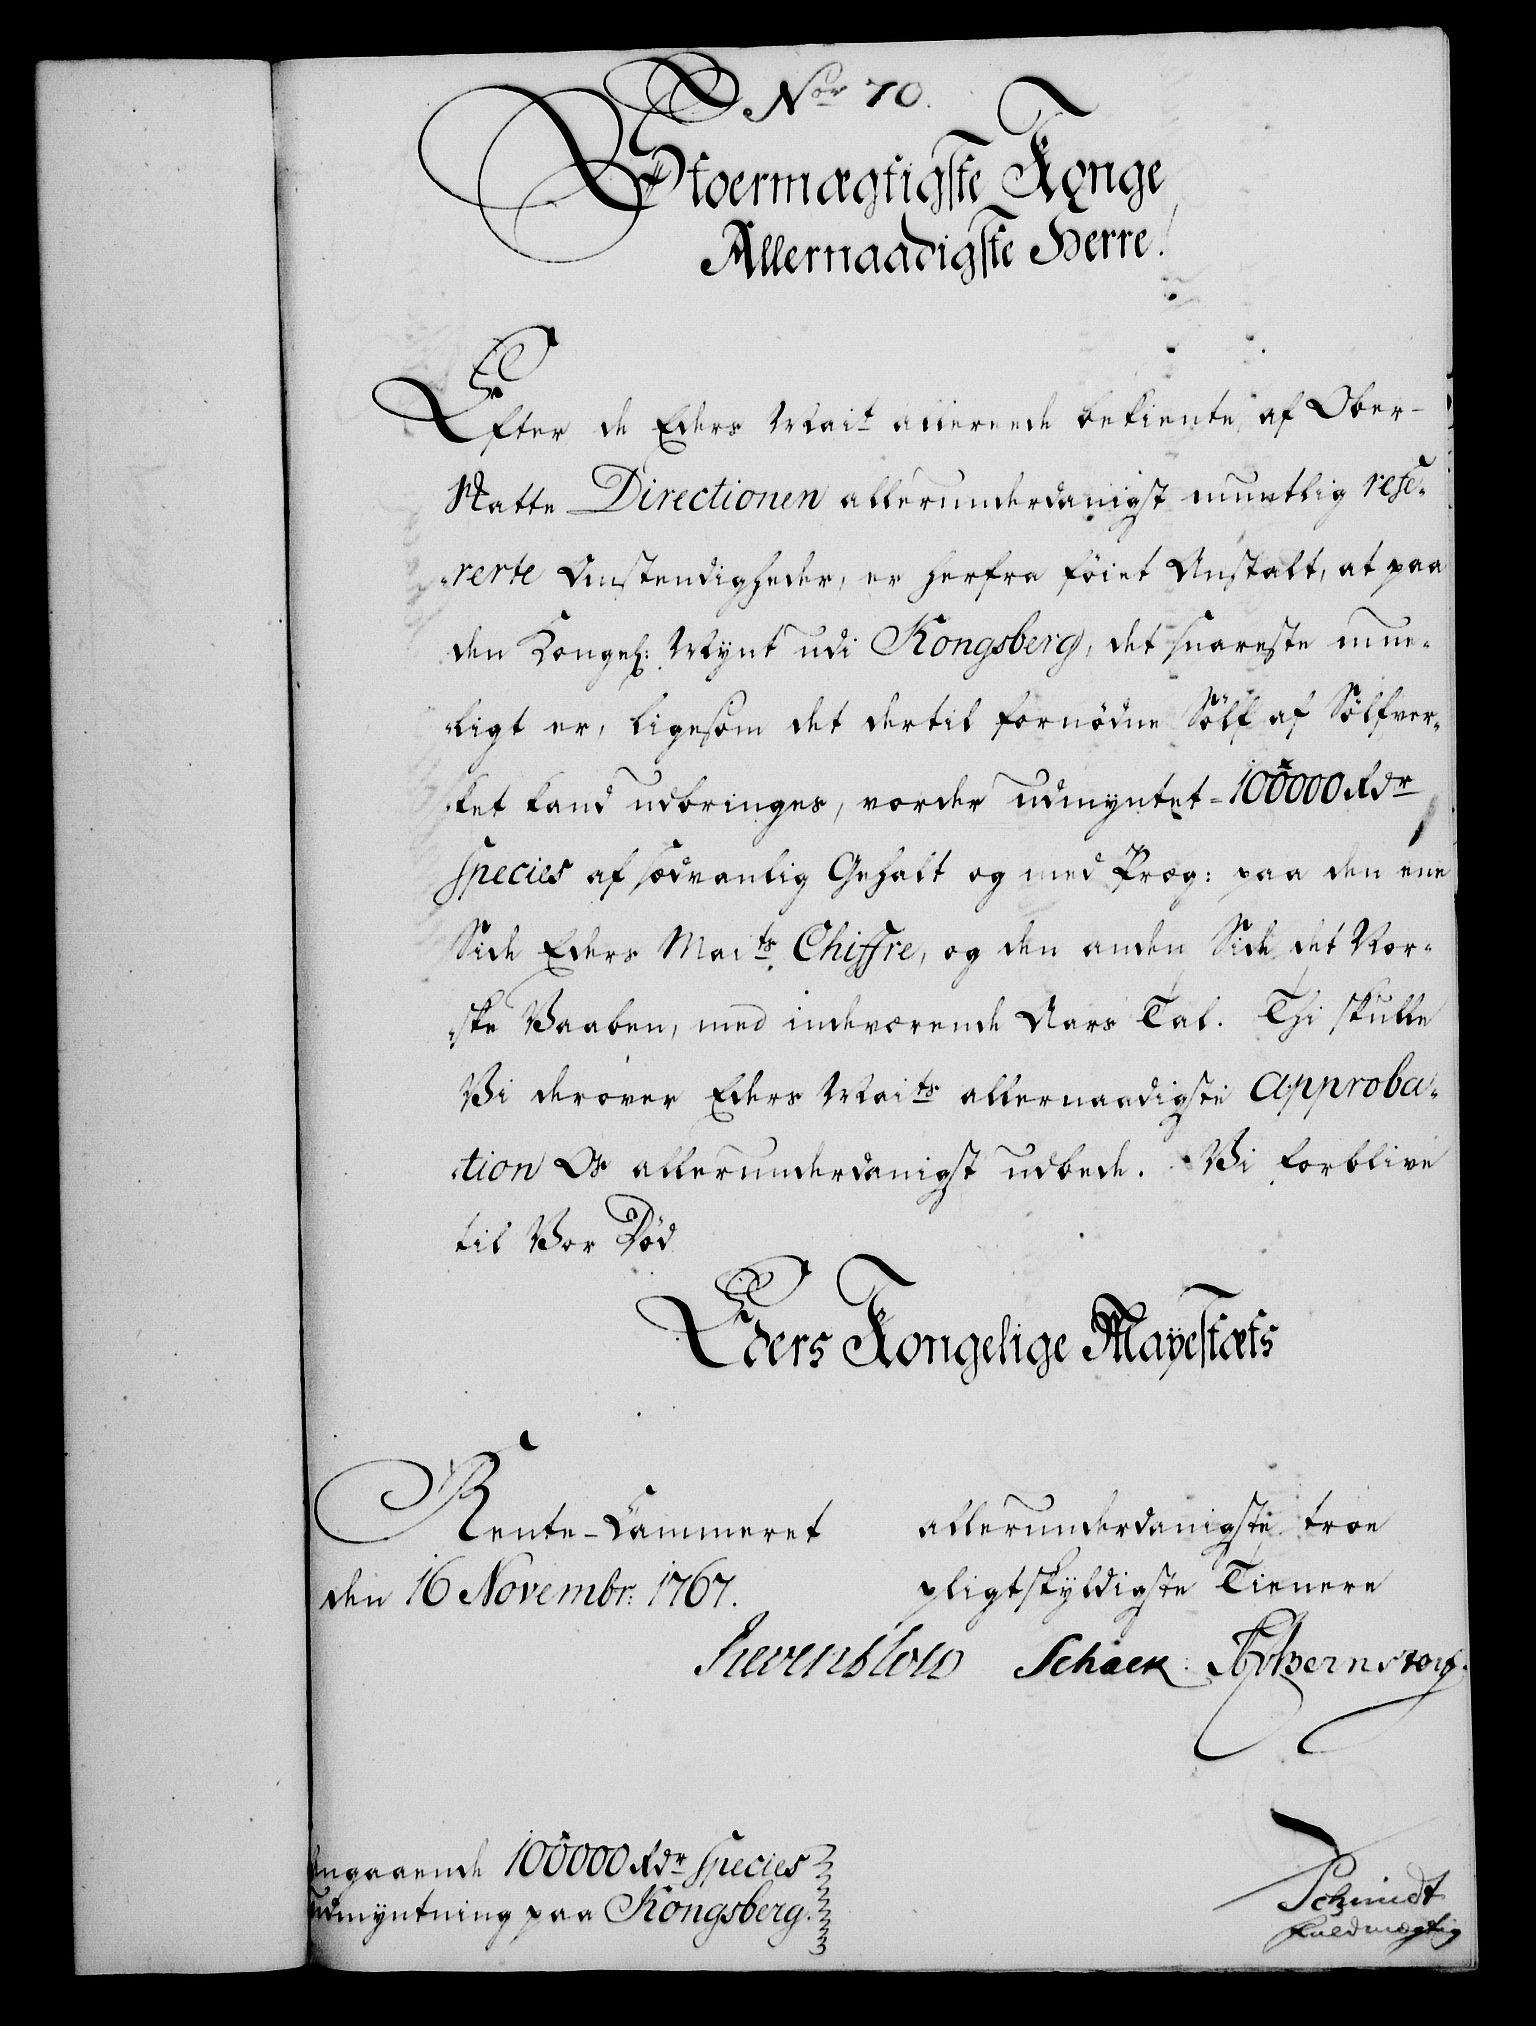 Nor 70.
Stoermægtigste Konge
Allernaadigste Herre!
Efter de Eders Mait allereede bekiente, af Ober-
Skatte Directionen allerunderdanigst mundtlig refe-
rerte Omstendigheder, er herfra föiet Anstalt, at paa
den Kongel: Mÿnt udi Kongsberg, det snareste mue-
ligt er, ligesom det dertil fornödne Sölf af Sölfver-
ket kand udbringes, vorder udmyntet = 100000 Rdr
Species af sædvanlig Gehalt og med Præg: paa den ene
Side Eders Maits Chiffre, og den anden Side det Nor-
ske Vaaben, med indeværende Aars Tal. Thi skulle
Vi derover Eders Maits allernaadigste approba-
tion Os allerunderdanigst udbede. Vi forblive
til Vor Död
Eders Kongelige Mayestæts
Rente-Cammeret allerunderdanigste troe
den 16 Novembr: 1767. pligtskÿldigste Tienere
Revenblow Schack. Bernstorff.
Angaaende 100000 Rdr Species
Udmyntning paa Kongsberg.
Schmidt
Fuldmægtig